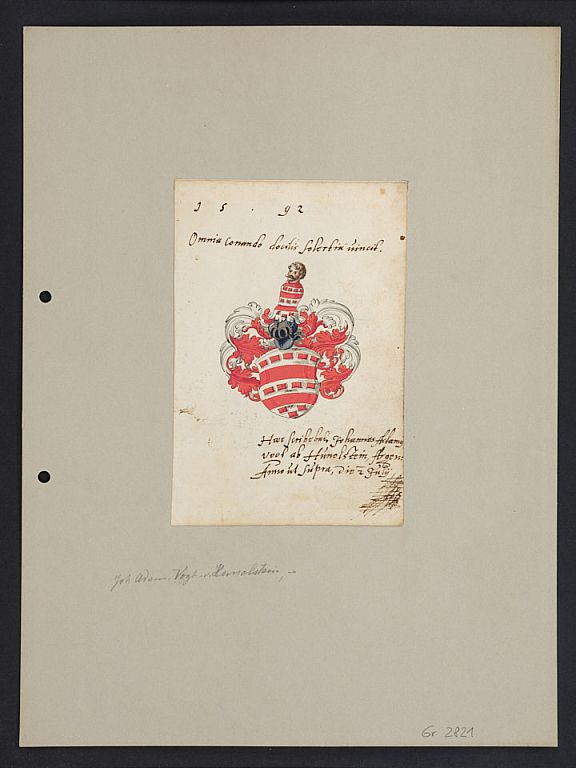 1 5 . 9 2
Omnia conando docilis solertia vincit.
Haec scribebat, Johannes Adamus
voogt ab Hunolstein, Argent:
Anno ut supra, die 2 Julij
Joh Adam, Vogt v. Hunolstein, -
Gr 2821